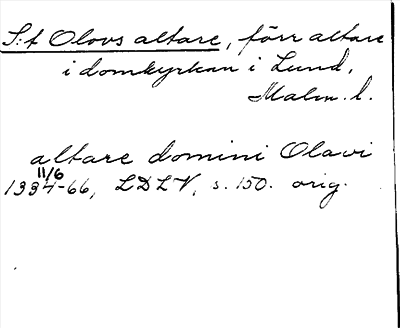 S:t Olovs altare, förr altare
i domkyrkan i Lund,
Malm. l.
altare domini Olavi
11/6
1334-66, LDLV, s. 150. orig.